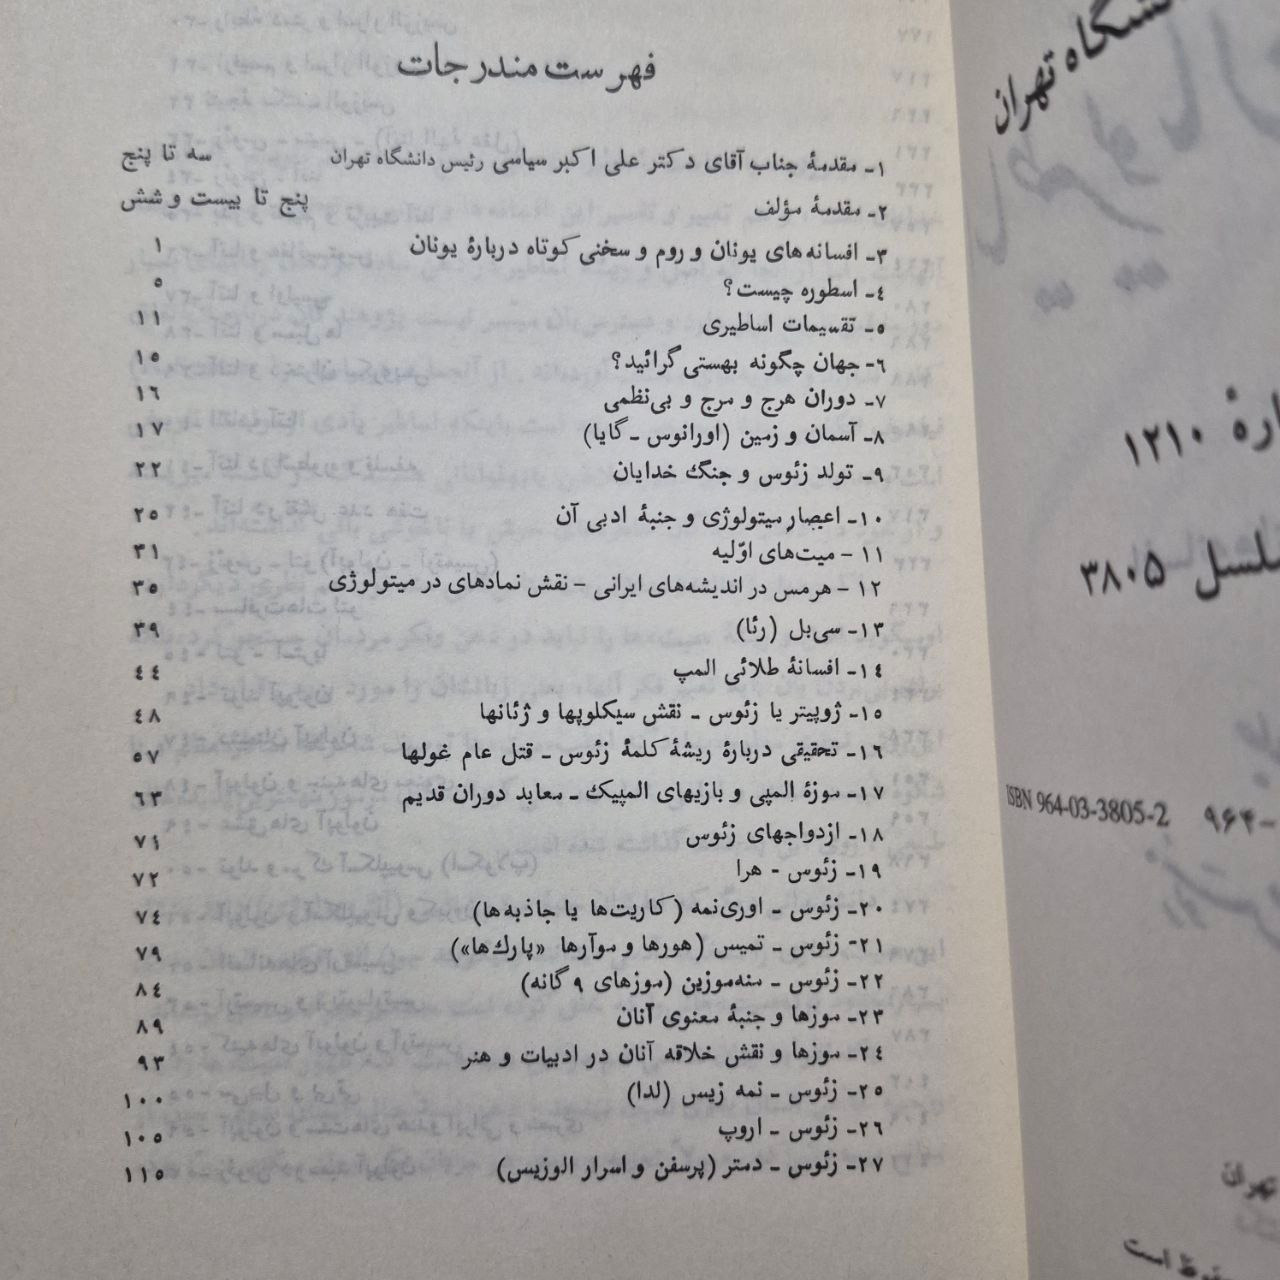 فهرست مندرجات
۱ـ مقدمهٔ جناب آقای دکتر علی اکبر سیاسی رئیس دانشگاه تهران سه تا پنج
۲ـ مقدمهٔ مؤلف پنج تا بیست و شش
۳ـ افسانه‌های یونان و روم و سخنی کوتاه دربارهٔ یونان ۱
٤ـ اسطوره چیست؟ ٥
٥ـ تقسیمات اساطیری ۱۱
٦- جهان چگونه بهستی گرائید؟ ۱٥
۷ـ دوران هرج و مرج و بی‌نظمی ۱٦
۸ـ آسمان و زمین (اورانوس ـ گایا) ۱۷
۹ـ تولد زئوس و جنگ خدایان ۲۲
۱۰ـ اعصار میتولوژی و جنبهٔ ادبی آن ۲٥
۱۱ - میت‌های اوّلیه ۳۱
۱۲ - هرمس در اندیشه‌های ایرانی - نقش نمادهای در میتولوژی ۳٥
۱۳ـ سی‌بل (رئا) ۳۹
۱٤ـ افسانهٔ طلائی المپ ٤٤
۱٥ـ ژوپیتر یا زئوس ـ نقش سیکلوپها و ژئانها ٤۸
۱٦ـ تحقیقی دربارهٔ ریشهٔ کلمهٔ زئوس ـ قتل عام غولها ٥۷
۱۷ـ موزهٔ المپی و بازیهای المپیک ـ معابد دوران قدیم ٦۳
۱۸ـ ازدواجهای زئوس ۷۱
۱۹ـ زئوس - هرا ۷۲
۲۰ـ زئوس ـ اوری‌نمه (کاریت‌ها یا جاذبه‌ها) ۷٤
۲۱- زئوس ـ تمیس (هورها و موآرها «پارک‌ها») ۷۹
۲۲ـ زئوس ـ منه‌موزین (موزهای ۹ گانه) ۸٤
۲۳ـ موزها و جنبهٔ معنوی آنان ۸۹
۲٤ـ موزها و نقش خلاقه آنان در ادبیات و هنر ۹۳
۲٥ـ زئوس ـ نمه زیس (لدا) ۱۰۰
۲٦ـ زئوس ـ اروپ ۱۰٥
۲۷ـ زئوس ـ دمتر (پرسفن و اسرار الوزیس) ۱۱٥
تهران
۱۲۱۰
۳۸۰۵
ISBN 964-03-3805-2 ۹۶۴-
تهران
است